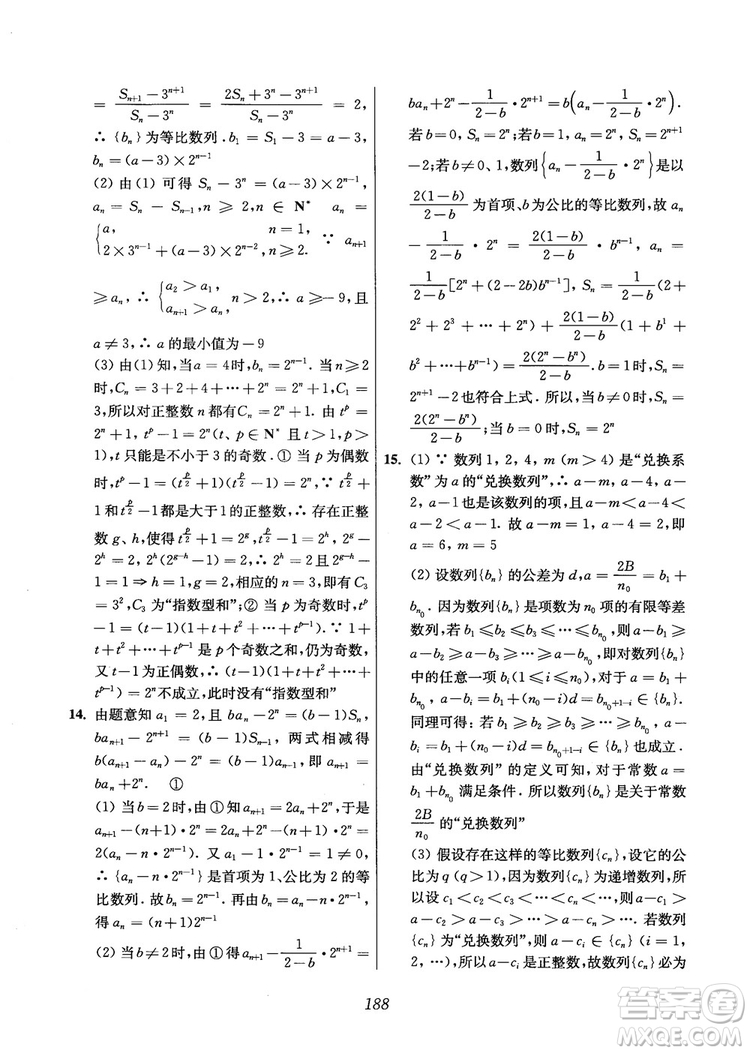 = \frac{S_{n+1}-3^{n+1}}{S_n-3^n} = \frac{2S_n+3^n-3^{n+1}}{S_n-3^n} = 2,
∴ {b_n}为等比数列. b_1=S_1-3=a-3,
b_n=(a-3)×2^{n-1}
(2) 由(1) 可得 S_n-3^n=(a-3)×2^{n-1},
a_n = S_n - S_{n-1}, n ⩾ 2, n ∈ N^* a_n =
{a, n=1,
2×3^{n-1}+(a-3)×2^{n-2}, n⩾2. ∵ a_{n+1}
⩾a_n, ∴ {a_2>a_1, a_{n+1}>a_n, n>2, ∴ a⩾-9, 且
a≠3, ∴ a 的最小值为-9
(3) 由(1)知,当a=4时,b_n=2^{n-1}.当n⩾2
时, C_n=3+2+4+…+2^n=2^n+1, C_1=
3,所以对正整数 n 都有C_n=2^n+1.由t^p=
2^n+1, t^p-1=2^n(t、p∈N^*且t>1, p>
1), t 只能是不小于3的奇数.① 当 p 为偶数
时, t^p-1=(t^{\frac{p}{2}}+1)(t^{\frac{p}{2}}-1)=2^n, ∵ t^{\frac{p}{2}}
+1和t^{\frac{p}{2}}-1都是大于1的正整数, ∴ 存在正整
数 g、h,使得 t^{\frac{p}{2}}+1=2^g, t^{\frac{p}{2}}-1=2^h,
2^g-2^h=2, 2^h(2^{g-h}-1)=2, ∴ 2^h=2且2^{g-h}
-1=1⇒h=1, g=2,相应的n=3,即有C_3
=3^2, C_3为“指数型和”;② 当 p 为奇数时,
t^p-1=(t-1)(1+t+t^2+…+t^{p-1}). ∵ 1+
t+t^2+…+t^{p-1}是p个奇数之和,仍为奇数,
又 t-1为正偶数, ∴ (t-1)(1+t+t^2+…+
t^{p-1})=2^n不成立,此时没有“指数型和”
14. 由题意知 a_1=2,且 ba_n-2^n=(b-1)S_n,
ba_{n+1}-2^{n+1}=(b-1)S_{n+1}, 两式相减得
b(a_{n+1}-a_n)-2^n=(b-1)a_{n+1},即 a_{n+1}=
ba_n+2^n. ①
(1) 当 b=2时,由①知 a_{n+1}=2a_n+2^n,于是
a_{n+1}-(n+1)·2^n=2a_n+2^n-(n+1)·2^n=
2(a_n-n·2^{n-1}). 又 a_1-1·2^{1-1}=1≠0,
∴ {a_n-n·2^{n-1}}是首项为1、公比为2的等
比数列.故 b_n=a_n-n·2^{n-1}=2^{n-1}.再由 b_n,
得 a_n=(n+1)2^{n-1}
(2) 当b≠2时,由①得 a_{n+1}-\frac{1}{2-b}·2^{n+1}=
ba_n+2^n-\frac{1}{2-b}·2^{n+1}=b(a_n-\frac{1}{2-b}·2^n).
若 b=0, S_n=2^n;若 b=1, a_n=2^n, S_n=2^{n+1}
-2;若b≠0、1,数列{a_n-\frac{1}{2-b}·2^n}是以
\frac{2(1-b)}{2-b}为首项、b为公比的等比数列,故 a_n
-\frac{1}{2-b}·2^n=\frac{2(1-b)}{2-b}·b^{n-1}, a_n=
\frac{1}{2-b}[2^n+(2-2b)b^{n-1}], S_n=\frac{1}{2-b}(2+
2^2+2^3+…+2^n)+\frac{2(1-b)}{2-b}(1+b+
b^2+…+b^{n-1})=\frac{2(2^n-b^n)}{2-b}. b=1时, S_n=
2^{n+1}-2也符合上式.所以,当 b≠0时, S_n=
\frac{2(2^n-b^n)}{2-b};当 b=0时, S_n=2^n
15. (1) ∵ 数列1, 2, 4, m (m>4) 是“兑换系
数”为 a 的“兑换数列”, ∴ a-m, a-4, a-
2, a-1也是该数列的项,且 a-m<a-4<a
-2<a-1.故 a-m=1, a-4=2,即
a=6, m=5
(2) 设数列{b_n}的公差为 d, a=\frac{2B}{n_0}=b_1+
b_{n_0}.因为数列{b_n}是项数为 n_0 项的有限等差
数列,若 b_1⩽b_2⩽b_3⩽…⩽b_{n_0},则 a-b_1⩾
a-b_2⩾a-b_3⩾…⩾a-b_{n_0},即对数列{b_n}
中的任意一项 b_i(1⩽i⩽n_0), a-b_i=b_1+
b_{n_0}-b_i=b_1+(n_0-i)d=b_{n_0+1-i}∈{b_n}.
同理可得:若 b_1⩾b_2⩾b_3⩾…⩾b_{n_0}, a-
b_i=b_1+(n_0-i)d=b_{n_0+1-i}∈{b_n}也成立.
由“兑换数列”的定义可知,对于常数 a=
b_1+b_{n_0} 满足条件.所以数列{b_n}是关于常数
\frac{2B}{n_0}的“兑换数列”
(3) 假设存在这样的等比数列{c_n},设它的公
比为 q (q>1),因为数列{c_n}为递增数列,所
以设 c_1<c_2<c_3<…<c_n,则 a-c_1>
a-c_2>a-c_3>…>a-c_n.若数列
{c_n}为“兑换数列”,则 a-c_i∈{c_n} (i=1,
2, …), a-c_i是正整数,故数列{c_n}必为
188
答案圈